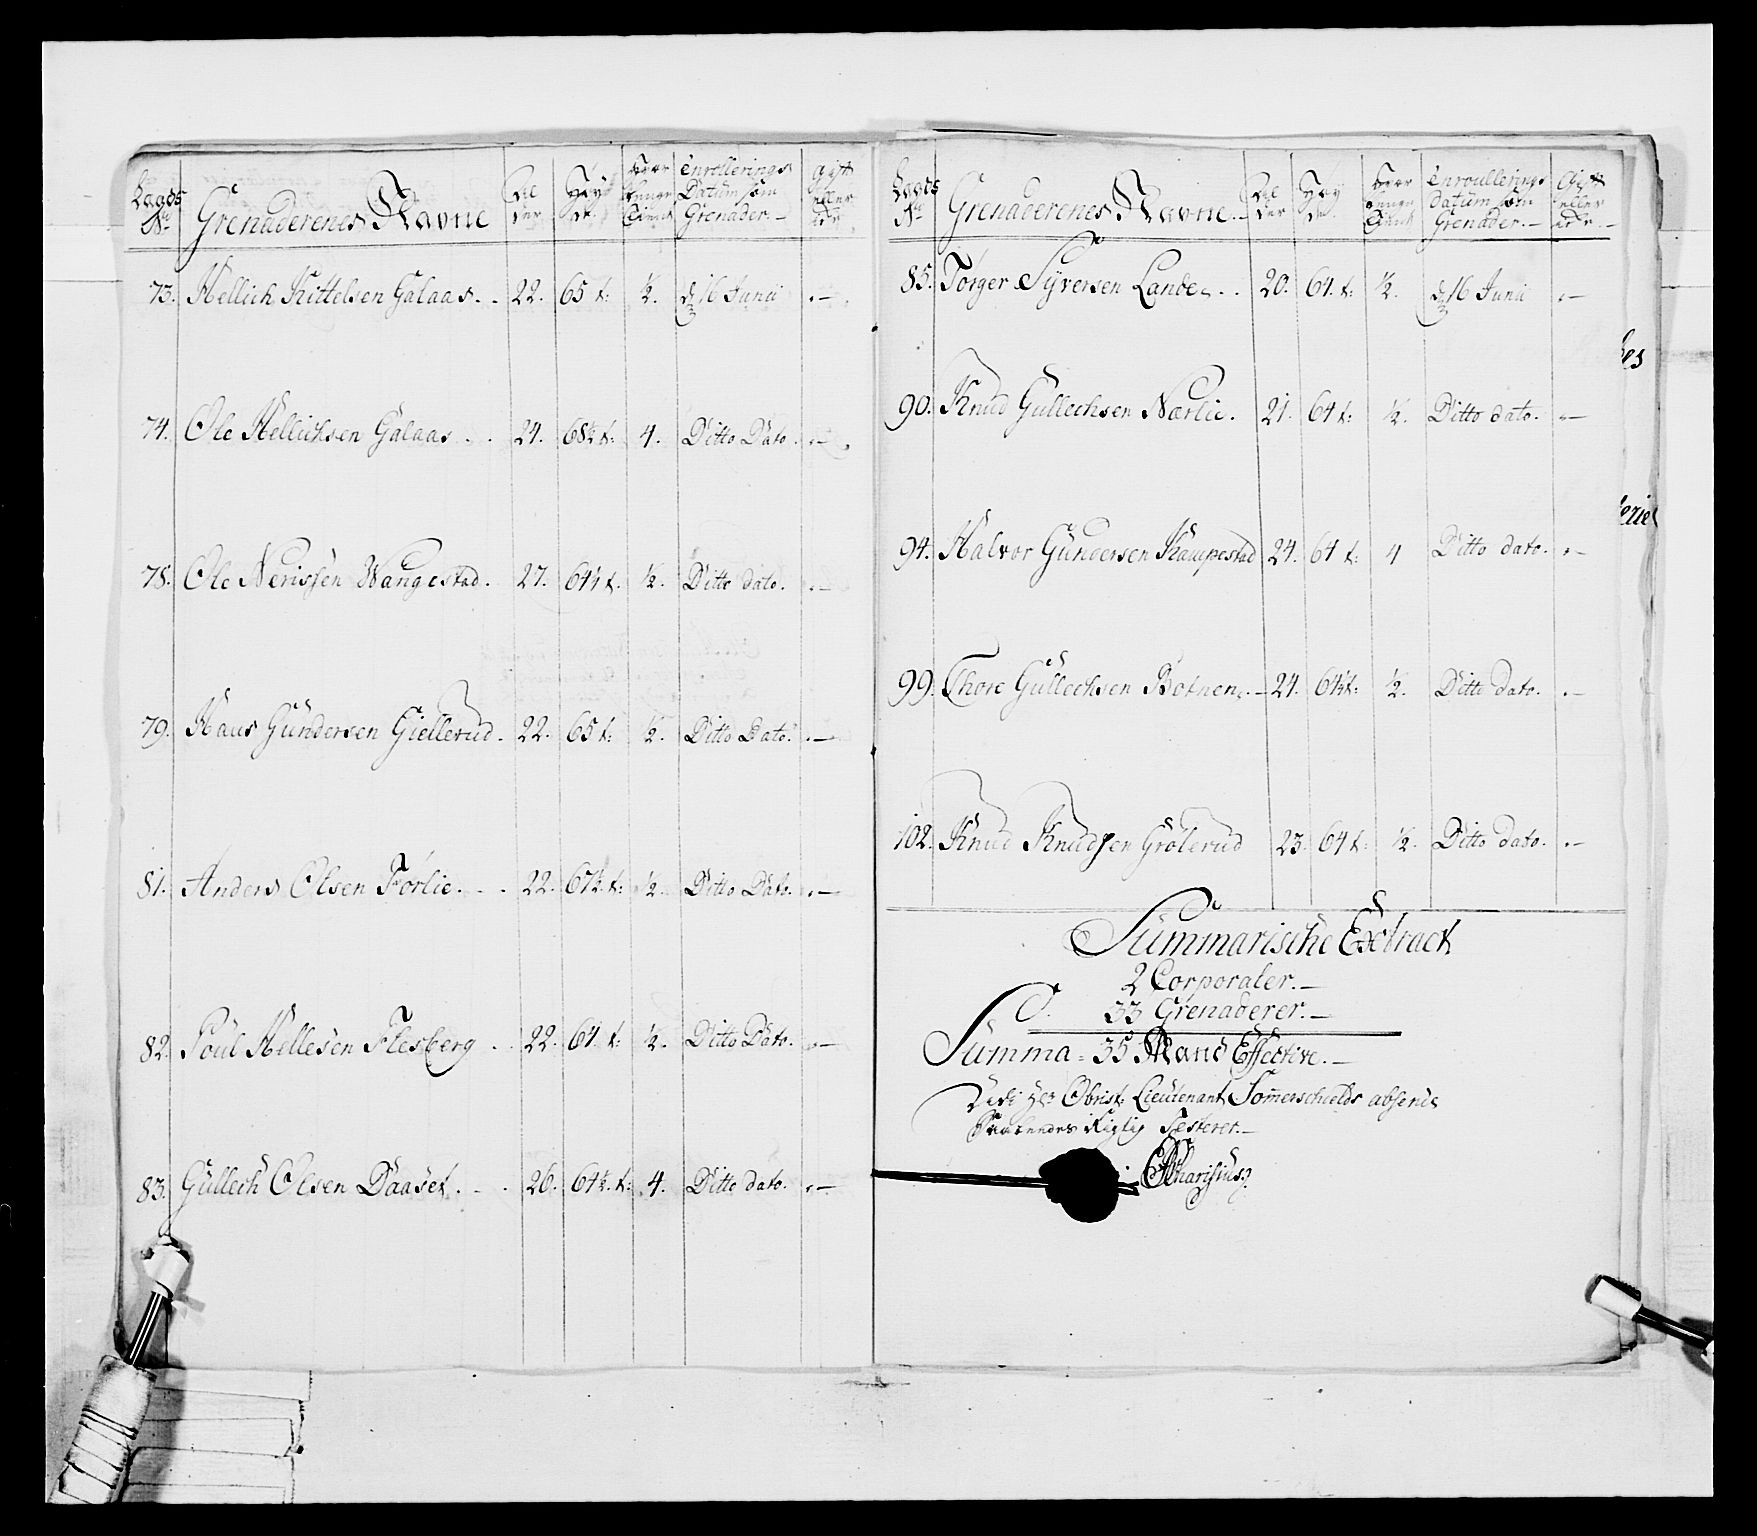 Lægds No Grenaderenes Navne Alder Høyde Enrollerings Datum som Grenader. Gift eller
73. Hellich Kittelsen Galaas. 22. 65 t: ½. d 16 Junii .—
74. Ole Hellichsen Galaas. 24. 68½ t: 4. Ditto Dato. .—
78. Ole Nerissen Wangestad. 27. 64½ t. ½. Ditto dato. .—
79. Hans Gundersen Giellerud. 22. 65 t: ½. Ditto Dato. .—
81. Anders Olsen Førlie. 22. 67½ t: ½. Ditto Dato. .—
82. Poul Hellesen Flesberg. 22. 64 t: ½. Ditto Dato. .—
83. Gullech Olsen Daaset. 26. 64½ t: 4. Ditto dato. .—
Lægds No Grenaderenes Navne. Alder Høyde Enroullerings datum som Grenader. Gift eller
85. Torger Syversen Lande. 20. 64 t: ½. d 16 Junii .—
90. Knud Gullechsen Nærlie. 21. 64 t: ½. Ditto dato. .—
94. Halvor Gundersen Kampestad 24. 64 t: 4 Ditto dato. .—
99. Thore Gullechsen Botnen. 24. 64½ t: ½. Ditto dato. .—
102. Knud Knudsen Grølerud 23. 64 t: ½. Ditto dato. .—
Summarische Extract
2 Corporaler.—
33 Grenaderer.—
Summa = 35 Mand Effective.—
Udi Hr Obrist: Lieutenant Sommerschields absence
Rigtig Testerer.—